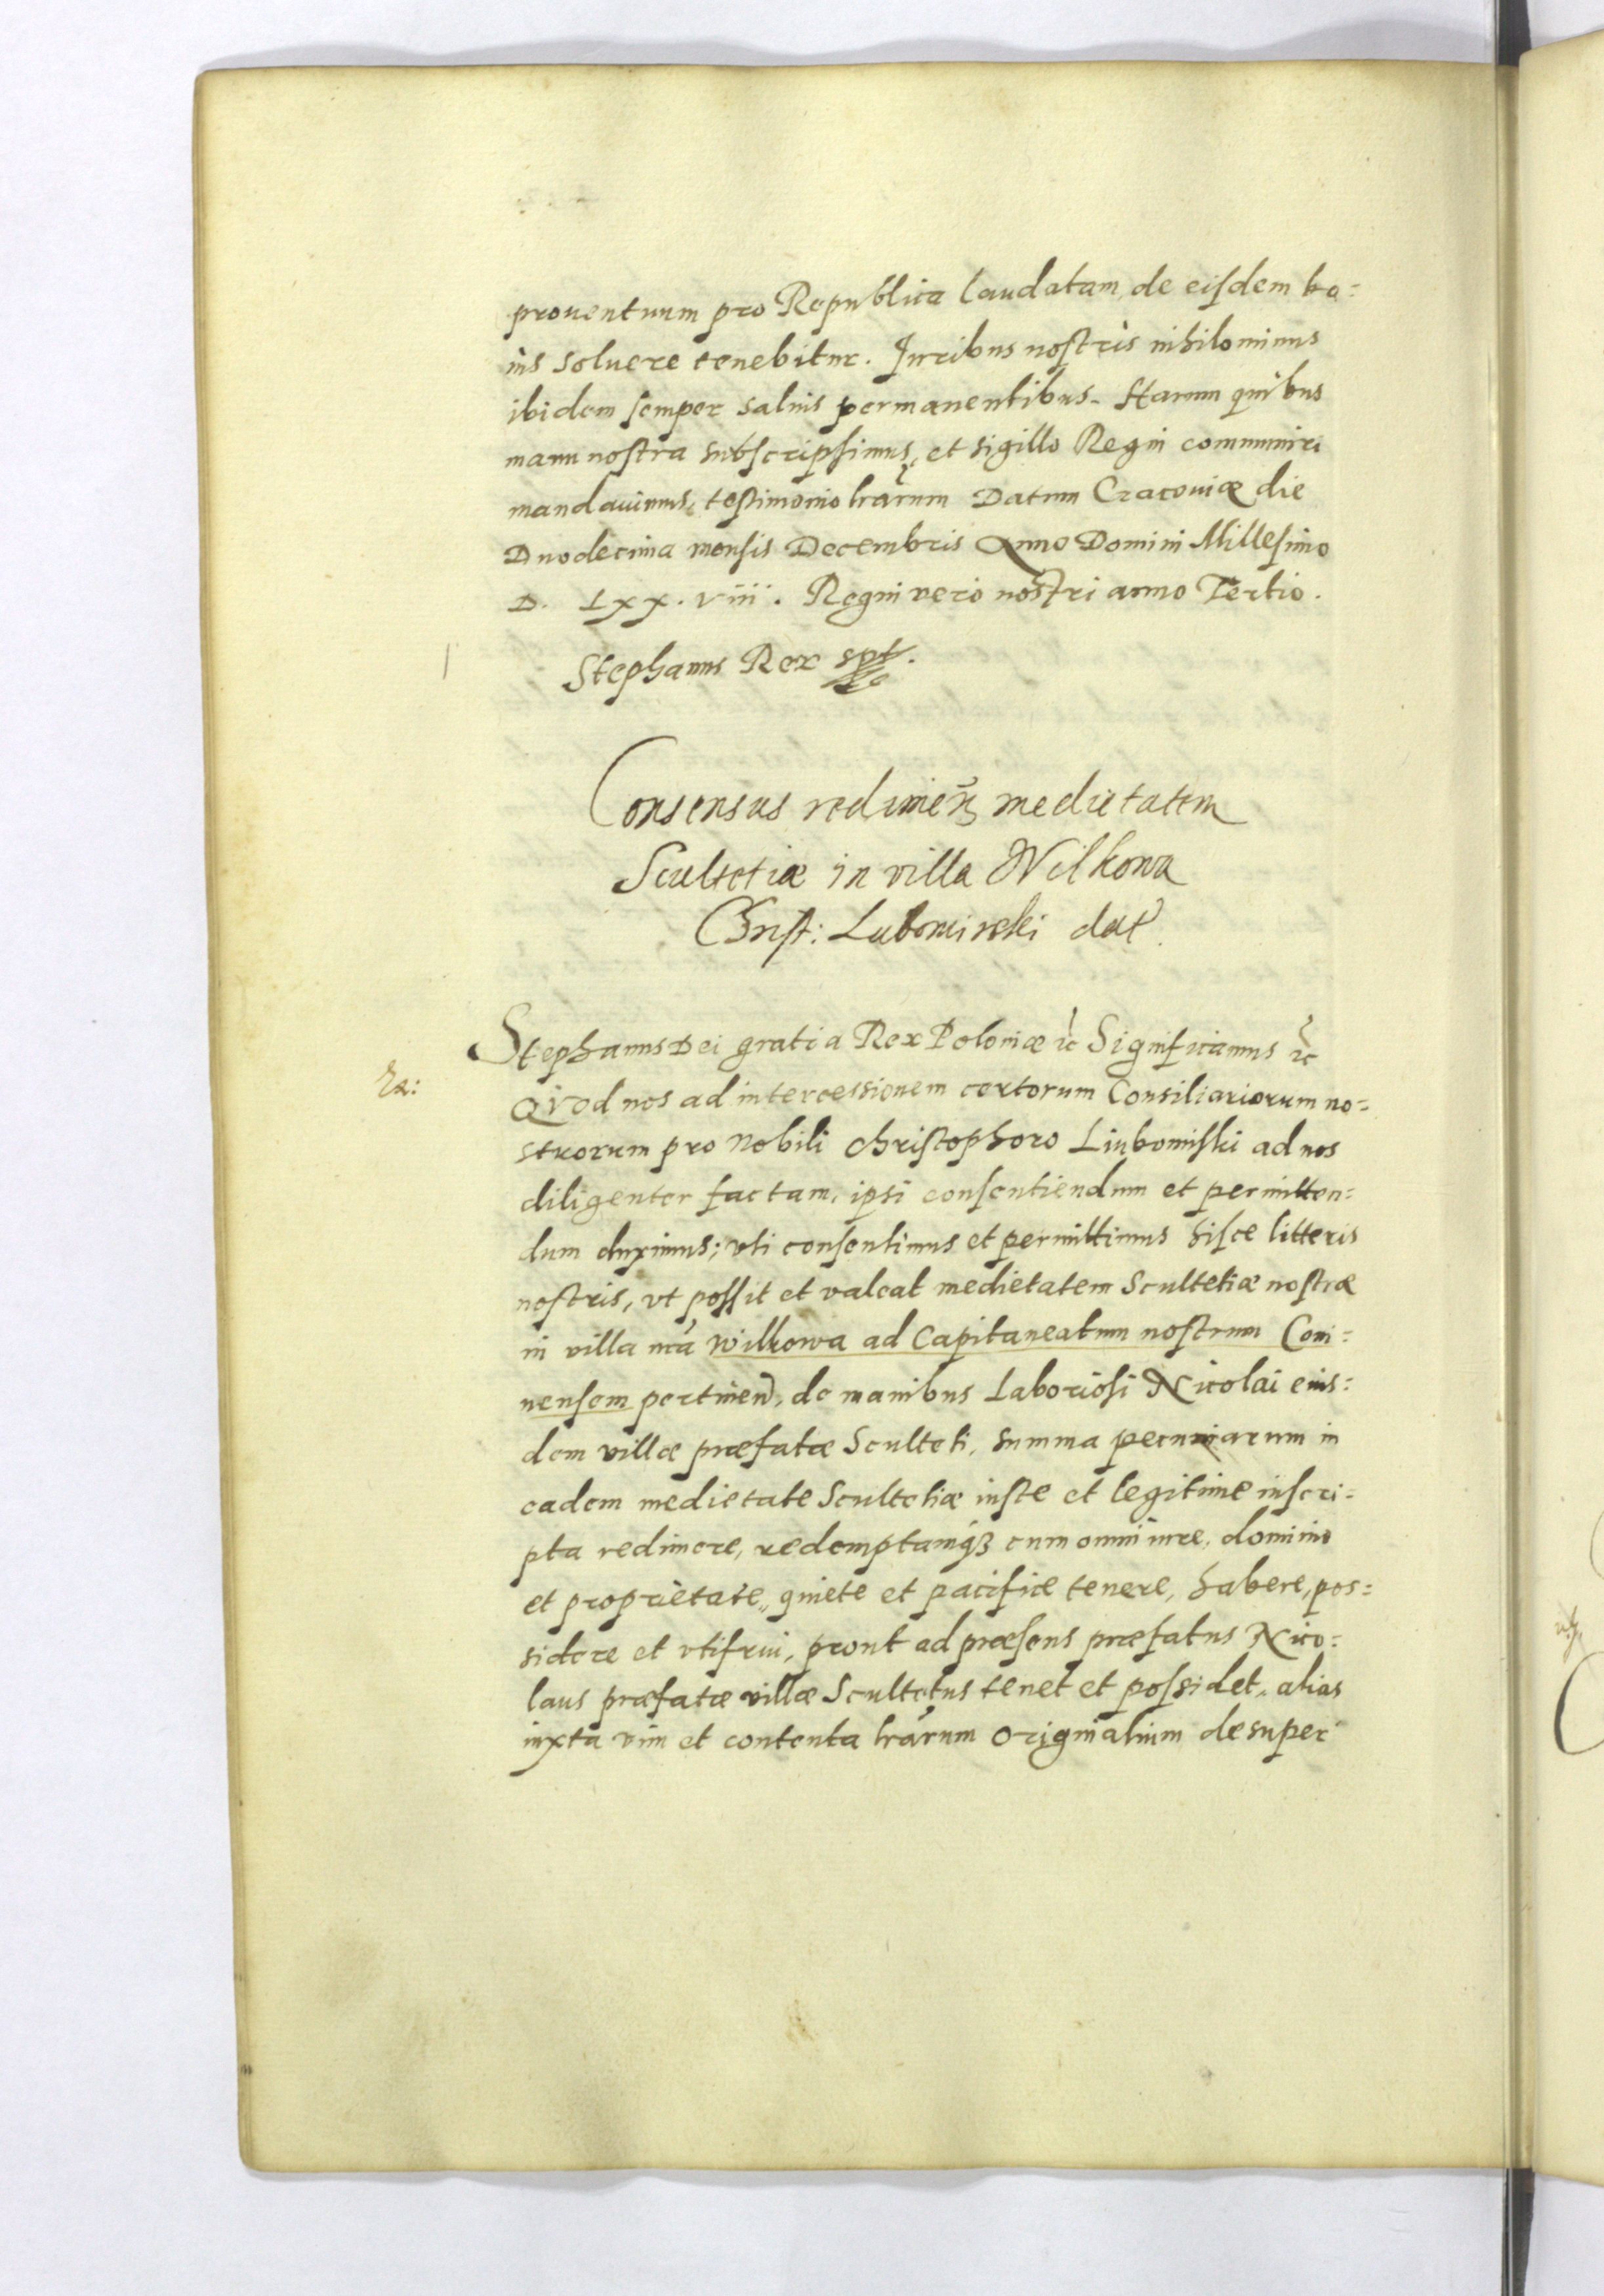 prouentuum pro Republica laudatam, de eisdem bo=
nis soluere tenebitur. Iuribus nostris nihilominus
ibidem semper saluis permanentibus. Harum quibus
manu nostra subscripsimus, et sigillo Regni communiri
mandauimus, testimonio lrarum Datum Cracouiæ die
Duodecima mensis Decembris Anno Domini Millesimo
D. Lxx. viii. Regni vero nostri anno Tertio.
Stephanus Rex spt.
Consensus redimen medietatem
Scultetiæ in villa Wilkowa
Christ: Lubomirski dat
Stephanus Dei gratia Rex Poloniæ &c Significamus &c
Quod nos ad intercessionem certorum Consiliariorum no=
strorum pro Nobili Christophoro Liubomiski ad nos
diligenter factam, ipsi consentiendum et permitten=
dum duximus; vti consentimus et permittimus hisce litteris
nostris, vt possit et valeat medietatem Scultetiæ nostræ
in villa nra Wilkowa ad Capitaneatum nostrum Coni=
nensem pertinen, de manibus Laboriosi Nicolai eius=
dem villæ præfatæ Sculteti, summa pecuniarum in
eadem medietate Scultetiæ iuste et legitime inscri=
pta redimere, redemptamq3 cum omni iure, dominio
et proprietate, quiete et pacifice tenere, habere, pos=
sidere et vtifrui, prout ad præsens præfatus Nico=
laus præfatæ villæ Scultetus tenet et possidet, alias
iuxta vim et contenta lrarum Originalium desuper